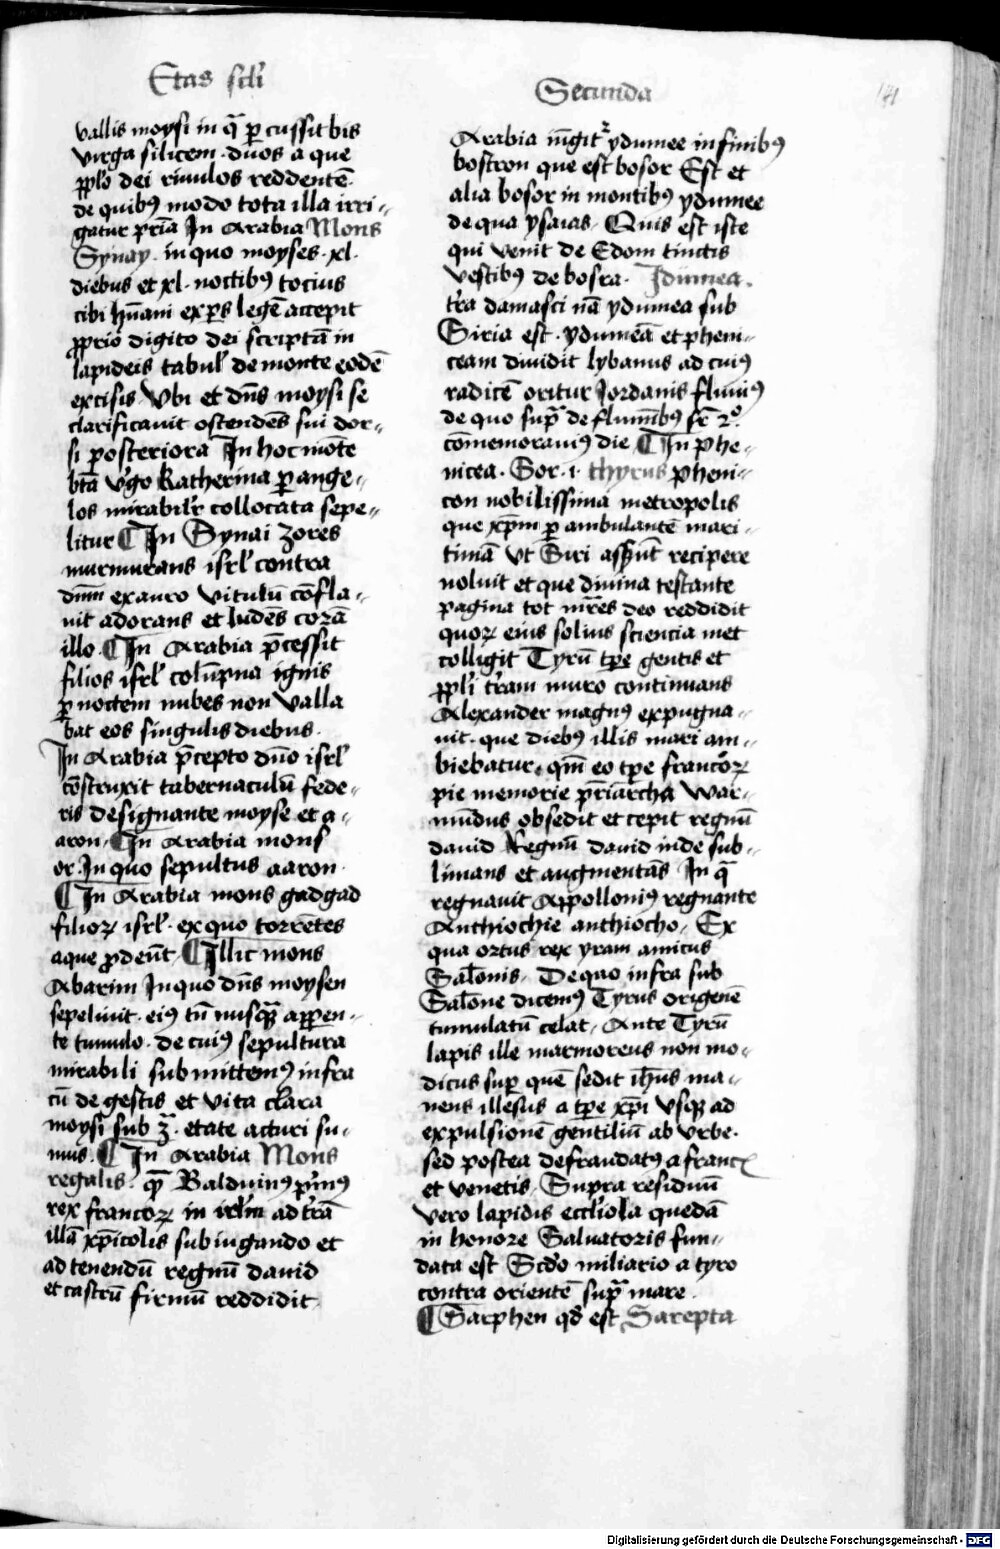 Etas scli
Secunda
181
vallis moysi in qͣ ꝑcussit bis
virga silicem · duos aque
ppl̓o dei riuulos reddentē
de quibꝰ modo tota illa irri⸗
gatur pr̄ia In Arabia Mons
Synay · in quo moyses · xl ·
diebus et xl · noctibꝰ tocius
cibi hūani exꝑs legē accepit
ꝓprio digito dei scriptā in
lapideis tabul̓ de monte eodē
excisis Vbi et dn̄s moysi se
clarificauit ostendēs sui dor⸗
si posteriora In hoc mōte
btā v̓go Katherina ꝑ ange⸗
los mirabilr̓ collocata sepe⸗
litur ¶ In Synai Zores
murmurans isrl̓ contra
dn̄m ex auro vitulū cōfla⸗
uit adorans et ludēs corā
illo · ¶ In Arabia p̄cessit
filios isrl̓ colūpna ignis
ꝑ noctem nubes non valla
bat eos singulis diebus ·
In Arabia p̄cepto dn̄o isrl̓
cōstruxit tabernaculū fede⸗
ris designante moyse et a⸗
aron · ¶ In Arabia mons
or · In quo sepultus aaron ·
¶ In Arabia mons gadgad
filioꝝ isrl̓ · ex quo torrētes
aque ꝓdeūt · ¶ Illic mons
Abarim In quo dn̄s moysen
sepeliuit · eiꝰ tn̄ nusqͣꝫ appen⸗
te tumulo · de cuiꝰ sepultura
mirabili submittemꝰ infra
cū de gestis et vita clara
moysi sub 3ͣ · etate acturi su⸗
mus · ¶ In Arabia Mons
regalis · qͣꝫ Balduinꝰ p̓mꝰ
rex francoꝝ in irl̓m ad tr̄ā
illā xp̄icolis subiugando et
ad tenendū regnū dauid
et castrū firmū reddidit
Arabia iūgitᷣ ydumee in finibꝰ
bostron que est bosor Est et
alia bosor in montibꝰ ydumee
de qua ysaias · Quis est iste
qui venit de Edom tinctis
vestibꝰ de bosra · Idumea ·
tr̄a damasci nā ydumea sub
Siria est · ydumeā et pheni⸗
ceam diuidit lybanus ad cuiꝰ
radicē oritur Jordanis fluuiꝰ
de quo supͣ de fluminibꝰ fr̄ 2º
cōmemorauimꝰ die ¶ In phe⸗
nicea · Sor · i · thyrus pheni⸗
con nobilissima metropolis
que xp̄m ꝑambulantē mari⸗
timā vt Siri asserūt recipere
noluit et que diuina testante
pagina tot mr̄es deo reddidit
quoꝝ eius solius sciencia met
colligit Tyrū tꝑe gentis et
ppl̓i tr̄am muro continuans
Alexander magnꝰ expugna⸗
uit · que diebꝰ illis mari am⸗
biebatur · qm̄ eo tꝑe francoꝝ
pie memorie pr̄iarcha War⸗
mundus obsedit et cepit regnū
dauid Regnū dauid inde sub⸗
limans et augmentās In qͣ
regnauit Appolloniꝰ regnante
Anthiochie anthiocho · Ex
qua ortus rex yram amicus
Salōnis · De quo infra sub
Salōne dicemꝰ Tyrus origenē
tumulatū celat · Ante Tyrū
lapis ille marmoreus non mo⸗
dicus sup quē sedit ih̄us ma⸗
nens illesus a tꝑe xp̄i vsqꝫ ad
expulsionē gentiliū ab vrbe ·
sed postea defraudatꝰ a franc̄
et venetis · Supra residuū
vero lapidis eccl̓iola quedā
in honore Saluatoris fun⸗
data est Scd̓o miliario a tyro
contra orientē supͣ mare ·
¶ Sarphen qd̓ est Sarepta
Digitalisierung gefördert durch die Deutsche Forschungsgemeinschaft - DFG